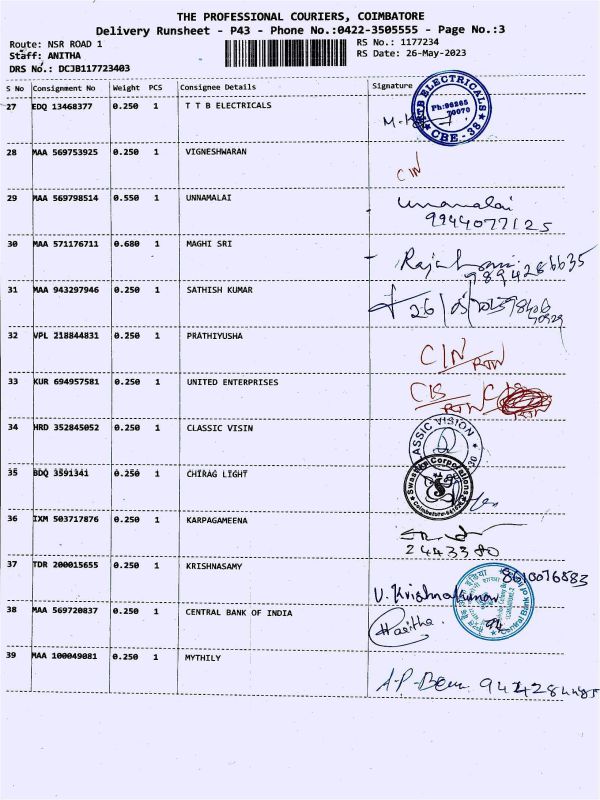 THE PROFESSIONAL COURIERS, COIMBATORE
Delivery Runsheet - P43 - Phone No.:0422-3505555 - Page No.:3
Route: NSR ROAD 1 RS No.: 1177234
Staff: ANITHA RS Date: 26-May-2023
DRS No.: DCJB117723403
S No Consignment No Weight PCS Consignee Details Signature
27 EDQ 13468377 0.250 1 T T B ELECTRICALS
TTB ELECTRICALS
Ph:96265
70070
CBE.-38
28 MAA 569753925 0.250 1 VIGNESHWARAN
CIN
29 MAA 569798514 0.550 1 UNNAMALAI
unnamalai
9944077125
30 MAA 571176711 0.680 1 MAGHI SRI
9894286635
31 MAA 943297946 0.250 1 SATHISH KUMAR
32 VPL 218844831 0.250 1 PRATHIYUSHA
CIN RTN
33 KUR 694957581 0.250 1 UNITED ENTERPRISES
CIS RTN
34 HRD 352845052 0.250 1 CLASSIC VISIN
ASSIC VISION
35 BDQ 3591341 0.250 1 CHIRAG LIGHT
Swastik Corporations
36 IXM 503717876 0.250 1 KARPAGAMEENA
2443380
37 TDR 200015655 0.250 1 KRISHNASAMY
8610076583
V. Krishnakumar
38 MAA 569720837 0.250 1 CENTRAL BANK OF INDIA
Haritha
Central Bank of
39 MAA 100049081 0.250 1 MYTHILY
A-P-